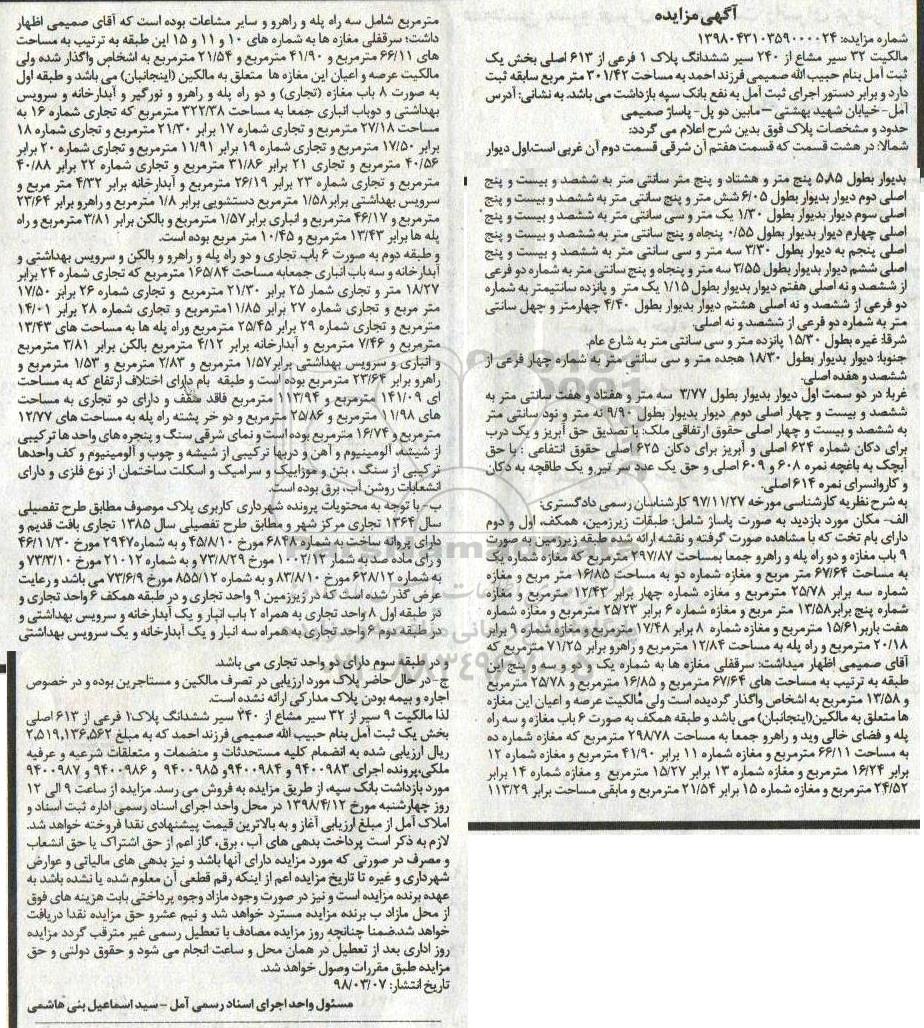 آگهی مزایده
شماره مزایده: ۱۳۹۸۰۴۳۱۰۳۵۹۰۰۰۰۲۴
مالکیت ۳۲ سیر مشاع از ۲۴۰ سیر ششدانگ پلاک ۱ فرعی از ۶۱۳ اصلی بخش یک
ثبت آمل بنام حبیب الله صمیمی فرزند احمد به مساحت ۳۰۱/۴۲ متر مربع سابقه ثبت
دارد و برابر دستور اجرای ثبت آمل به نفع بانک سپه بازداشت می باشد. به نشانی: آدرس
آمل- خیابان شهید بهشتی – مابین دو پل- پاساژ صمیمی
حدود و مشخصات پلاک فوق بدین شرح اعلام می گردد:
شمالا: در هشت قسمت که قسمت هفتم آن شرقی قسمت دوم آن غربی است.اول دیوار
بدیوار بطول ۵.۸۵ پنج متر و هشتاد و پنج متر سانتی متر به ششصد و بیست و پنج
اصلی دوم دیوار بدیوار بطول ۶/۰۵ شش متر و پنج سانتی متر به ششصد و بیست و پنج
اصلی سوم دیوار بدیوار بطول ۱/۳۰ یک متر و سی سانتی متر به ششصد و بیست و پنج
اصلی چهارم دیوار بدیوار بطول ۰/۵۵ پنجاه و پنج سانتی متر به ششصد و بیست و پنج
اصلی پنجم به دیوار بطول ۳/۳۰ سه متر و سی سانتی متر به ششصد و بیست و پنج
اصلی ششم دیوار بدیوار بطول ۳/۵۵ سه متر و پنجاه و پنج سانتی متر به شماره دو فرعی
از ششصد و نه اصلی هفتم دیوار بدیوار بطول ۱/۱۵ یک متر و پانزده سانتیمتر به شماره
دو فرعی از ششصد و نه اصلی هشتم دیوار بدیوار بطول ۴/۴۰ چهارمتر و چهل سانتی
متر به شماره دو فرعی از ششصد و نه اصلی.
شرقا: غیره بطول ۱۵/۳۰ پانزده متر و سی سانتی متر به شارع عام.
جنوبا: دیوار بدیوار بطول ۱۸/۳۰ هجده متر و سی سانتی متر به شماره چهار فرعی از
ششصد و هفده اصلی.
غربا: در دو سمت اول دیوار بدیوار بطول ۳/۷۷ سه متر و هفتاد و هفت سانتی متر به
ششصد و بیست و چهار اصلی دوم دیوار بدیوار بطول ۹/۹۰ نه متر و نود سانتی متر
به ششصد و بیست و چهار اصلی حقوق ارتفاقی ملک: با تصدیق حق آبریز و یک درب
برای دکان شماره ۶۲۴ اصلی و آبریز برای دکان ۶۲۵ اصلی حقوق انتفاعی : با حق
آبچک به باغچه نمره ۶۰۸ و ۶۰۹ اصلی و حق یک عدد سر تیر و یک طاقچه به دکان
و کاروانسرای نمره ۶۱۴ اصلی.
به شرح نظریه کارشناسی مورخه ۹۷/۱۱/۲۷ کارشناسان رسمی دادگستری:
الف- مکان مورد بازدید به صورت پاساژ شامل: طبقات زیرزمین، همکف، اول و دوم
دارای بام تخت که با مشاهده صورت گرفته و نقشه ارائه شده طبقه زیرزمین به صورت
۹ باب مغازه و دو راه پله و راهرو جمعا بمساحت ۲۹۷/۸۷ مترمربع که مغازه شماره یک
به مساحت ۶۷/۶۴ متر مربع و مغازه شماره دو به مساحت ۱۶/۸۵ متر مربع و مغازه
شماره سه برابر ۲۵/۷۸ مترمربع و مغازه شماره چهار برابر ۱۲/۴۳ مترمربع و مغازه
شماره پنج برابر۱۳/۵۸ متر مربع و مغازه شماره ۶ برابر ۲۵/۲۳ مترمربع و مغازه شماره
هفت باربر ۱۵/۶۱ مترمربع و مغازه شماره ۸ برابر ۱۷/۴۸ مترمربع ومغازه شماره ۹ برابر
۲۰/۱۸ مترمربع و راه پله به مساحت ۱۲/۸۴ مترمربع و راهرو برابر ۷۱/۲۵ مترمربع که
آقای صمیمی اظهار میداشت: سرقفلی مغازه ها به شماره یک و دو و سه و پنج این
طبقه به ترتیب به مساحت های ۶۷/۶۴ مترمربع و ۱۶/۸۵ مترمربع و ۲۵/۷۸ مترمربع
و ۱۳/۵۸ مترمربع به اشخاص واگذار گردیده است ولی مُالکیت عرصه و اعیان این مغازه
ها متعلق به مالکین(اینجانبان) می باشد و طبقه همکف به صورت ۶ باب مغازه و سه راه
پله و فضای خالی وید و راهرو جمعا به مساحت ۲۹۸/۷۸ مترمربع که مغازه شماره ده
به مساحت ۶۶/۱۱ مترمربع و مغازه شماره ۱۱ برابر ۴۱/۹۰ مترمربع و مغازه شماره ۱۲
برابر ۱۶/۲۴ مترمربع و مغازه شماره ۱۳ برابر ۱۵/۲۷ مترمربع و مغازه شماره ۱۴ برابر
۲۴/۵۲ مترمربع و مغازه شماره ۱۵ برابر ۲۱/۵۴ مترمربع و مابقی مساحت برابر ۱۱۳/۲۹
مترمربع شامل سه راه پله و راهرو و سایر مشاعات بوده است که آقای صمیمی اظهار
داشت: سرقفلی مغازه ها به شماره های ۱۰ و ۱۱ و ۱۵ این طبقه به ترتیب به مساحت
های ۶۶/۱۱ مترمربع و ۴۱/۹۰ مترمربع و ۲۱/۵۴ مترمربع به اشخاص واگذار شده ولی
مالکیت عرصه و اعیان این مغازه ها متعلق به مالکین (اینجانبان) می باشد و طبقه اول
به صورت ۸ باب مغازه (تجاری) و دو راه پله و راهرو و نورگیر و آبدارخانه و سرویس
بهداشتی و دوباب انباری جمعا به مساحت ۳۲۲/۳۸ مترمربع که تجاری شماره ۱۶ به
مساحت ۲۷/۱۸ مترمربع و تجاری شماره ۱۷ برابر ۲۱/۳۰ مترمربع و تجاری شماره ۱۸
برابر ۱۷/۵۰ مترمربع و تجاری شماره ۱۹ برابر ۱۱/۹۱ مترمربع و تجاری شماره ۲۰ برابر
۴۰/۵۶ مترمربع و تجاری ۲۱ برابر ۳۱/۸۶ مترمربع و تجاری شماره ۲۲ برابر ۴۰/۸۸
مترمربع و تجاری شماره ۲۳ برابر ۲۶/۱۹ مترمربع و آبدارخانه برابر ۴/۳۲ متر مربع و
سرویس بهداشتی برابر۱/۵۸ مترمربع دستشویی برابر ۱/۸ مترمربع و راهرو برابر ۲۳/۶۴
مترمربع و ۴۶/۱۷ مترمربع و انباری برابر ۱/۵۷ مترمربع و بالکن برابر ۳/۸۱ مترمربع و راه
پله ها برابر ۱۳/۴۳ مترمربع و ۱۰/۴۵ متر مربع بوده است.
و طبقه دوم به صورت ۶ باب تجاری و دو راه پله و راهرو و بالکن و سرویس بهداشتی و
آبدارخانه و سه باب انباری جمعابه مساحت ۱۶۵/۸۴ مترمربع که تجاری شماره ۲۴ برابر
۱۸/۲۷ متر و تجاری شمار ۲۵ برابر ۲۱/۳۰ مترمربع و تجاری شماره ۲۶ برابر ۱۷/۵۰
متر مربع و تجاری شماره ۲۷ برابر ۱۱/۸۵مترمربع و تجاری شماره ۲۸ برابر ۱۴/۰۱
مترمربع و تجاری شماره ۲۹ برابر ۲۵/۴۵ مترمربع وراه پله ها به مساحت های ۱۳/۴۳
مترمربع و ۷/۴۶ مترمربع و آبدارخانه برابر ۴/۱۲ مترمربع بالکن برابر ۳/۸۱ مترمربع
و انباری و سرویس بهداشتی برابر۱/۵۷ مترمربع و ۲/۸۳ مترمربع و ۱/۵۳ مترمربع و
راهرو برابر ۲۳/۶۴ مترمربع بوده است و طبقه بام دارای اختلاف ارتفاع که به مساحت
ای ۱۴۱/۰۹ مترمربع و ۱۱۳/۹۴ مترمربع فاقد سقف و دارای دو تجاری به مساحت
های ۱۱/۹۸ مترمربع و ۲۵/۸۶ مترمربع و دو خر پشته راه پله به مساحت های ۱۲/۷۷
مترمربع و ۱۶/۷۴ مترمربع بوده است و نمای شرقی سنگ و پنجره های واحد ها ترکیبی
از شیشه، آلومینیوم و آهن و دربها ترکیبی از شیشه و چوب و آلومینیوم و کف واحدها
ترکیبی از سنگ ، بتن و موزاییک و سرامیک و اسکلت ساختمان از نوع فلزی و دارای
انشعابات روشن آب، برق بوده است.
ب- با توجه به محتویات پرونده شهرداری کاربری پلاک موصوف مطابق طرح تفصیلی
سال ۱۳۶۴ تجاری مرکز شهر و مطابق طرح تفصیلی سال ۱۳۸۵ تجاری بافت قدیم و
دارای پروانه ساخت به شماره ۶۸۴۸ مورخ ۴۵/۸/۱۰ و به شماره۲۹۴۷ مورخ ۴۶/۱۱/۳۰
و رای ماده صد به شمار ۱۰۰۲/۱۲ مورخ ۷۳/۸/۲۹ و به شماره ۲۱۰۱۲ مورخ ۷۳/۳/۱۰ و
به شماره ۶۲۸/۱۲ مورخ ۸۳/۸/۱۰ و به شماره ۸۵۵/۱۲ مورخ ۷۳/۶/۹ می باشد و رعایت
عرض گذر شده است که در زیرزمین ۹ واحد تجاری و در طبقه همکف ۶ واحد تجاری و
در طبقه اول ۸ واحد تجاری به همراه ۲ باب انبار و یک آبدارخانه و سرویس بهداشتی و
در طبقه دوم ۶ واحد تجاری به همراه سه انبار و یک آبدارخانه و یک سرویس بهداشتی
و در طبقه سوم دارای دو واحد تجاری می باشد.
ج- در حال حاضر پلاک مورد ارزیابی در تصرف مالکین و مستاجرین بوده و در خصوص
اجاره و بیمه بودن پلاک مدارکی ارائه نشده است.
لذا مالکیت ۹ سیر از ۳۲ سیر مشاع از ۲۴۰ سیر ششدانگ پلاک۱ فرعی از ۶۱۳ اصلی
بخش یک ثبت آمل بنام حبیب الله صمیمی فرزند احمد که به مبلغ ۲,۵۱۹,۱۳۶,۵۶۲
ریال ارزیابی شده به انضمام کلیه مستحدثات و منضمات و متعلقات شرعیه و عرفیه
ملکی،پرونده اجرای ۹۴۰۰۹۸۳ و ۹۴۰۰۹۸۴و ۹۴۰۰۹۸۵ و ۹۴۰۰۹۸۶ و ۹۴۰۰۹۸۷
مورد بازداشت بانک سپه، از طریق مزایده به فروش می رسد. مزایده از ساعت ۹ الی ۱۲
روز چهارشنبه مورخ ۱۳۹۸/۴/۱۲ در محل واحد اجرای اسناد رسمی اداره ثبت اسناد و
املاک آمل از مبلغ ارزیابی آغاز و به بالاترین قیمت پیشنهادی نقدا فروخته خواهد شد.
لازم به ذکر است پرداخت بدهی های آب ، برق، گاز اعم از حق اشتراک یا حق انشعاب
و مصرف در صورتی که مورد مزایده دارای آنها باشد و نیز بدهی های مالیاتی و عوارض
شهرداری و غیره تا تاریخ مزایده اعم از اینکه رقم قطعی آن معلوم شده یا نشده باشد به
عهده برنده مزایده است و نیز در صورت وجود مازاد وجوه پرداختی بابت هزینه های فوق
از محل مازاد ب برنده مزایده مسترد خواهد شد و نیم عشرو حق مزایده نقدا دریافت
خواهد شد.ضمنا چنانچه روز مزایده مصادف با تعطیل رسمی غیر مترقب گردد مزایده
روز اداری بعد از تعطیل در همان محل و ساعت انجام می شود و حقوق دولتی و حق
مزایده طبق مقررات وصول خواهد شد.
تاریخ انتشار: ۹۸/۰۳/۰۷
مسئول واحد اجرای اسناد رسمی آمل – سید اسماعیل بنی هاشمی